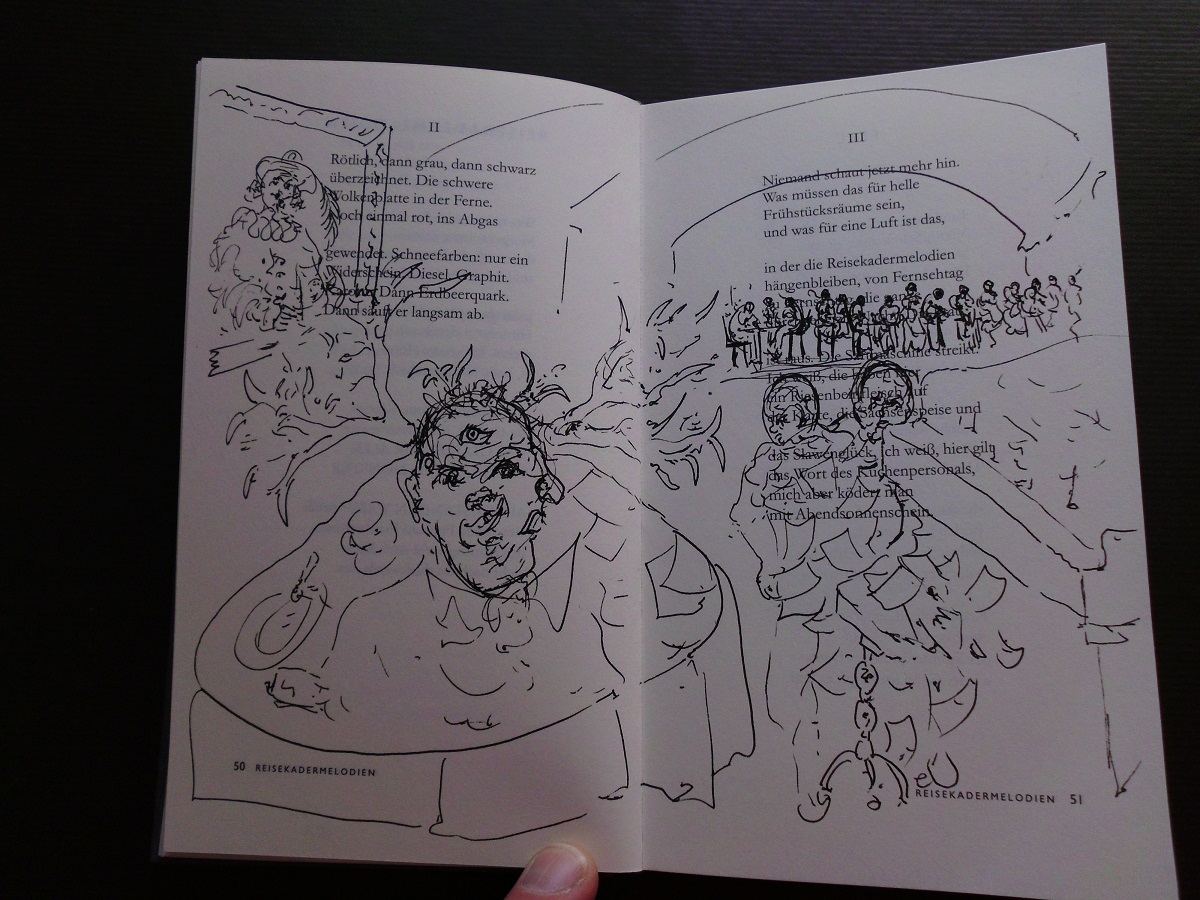 II
Rötlich, dann grau, dann schwarz
überzeichnet. Die schwere
Wolkenplatte in der Ferne.
Noch einmal rot, ins Abgas
gewendet. Schneefarben: nur ein
Widerschein. Diesel, Graphit.
Dann Erdbeerquark.
Dann säuft er langsam ab.
50 REISEKADERMELODIEN
III
Niemand schaut jetzt mehr hin.
Was müssen das für helle
Frühstücksräume sein,
und was für eine Luft ist das,
in der die Reisekadermelodien
hängenbleiben, von Fernsehtag
zu die
ist raus. Die streikt.
Ich weiß, die haben
ein Riesenbeinfleisch auf
der Karte, die Sachsenspeise und
das Slawenglück. Ich weiß, hier gilt
das Wort des Küchenpersonals,
mich aber ködert man
mit Abendsonnenschein.
REISEKADERMELODIEN 51